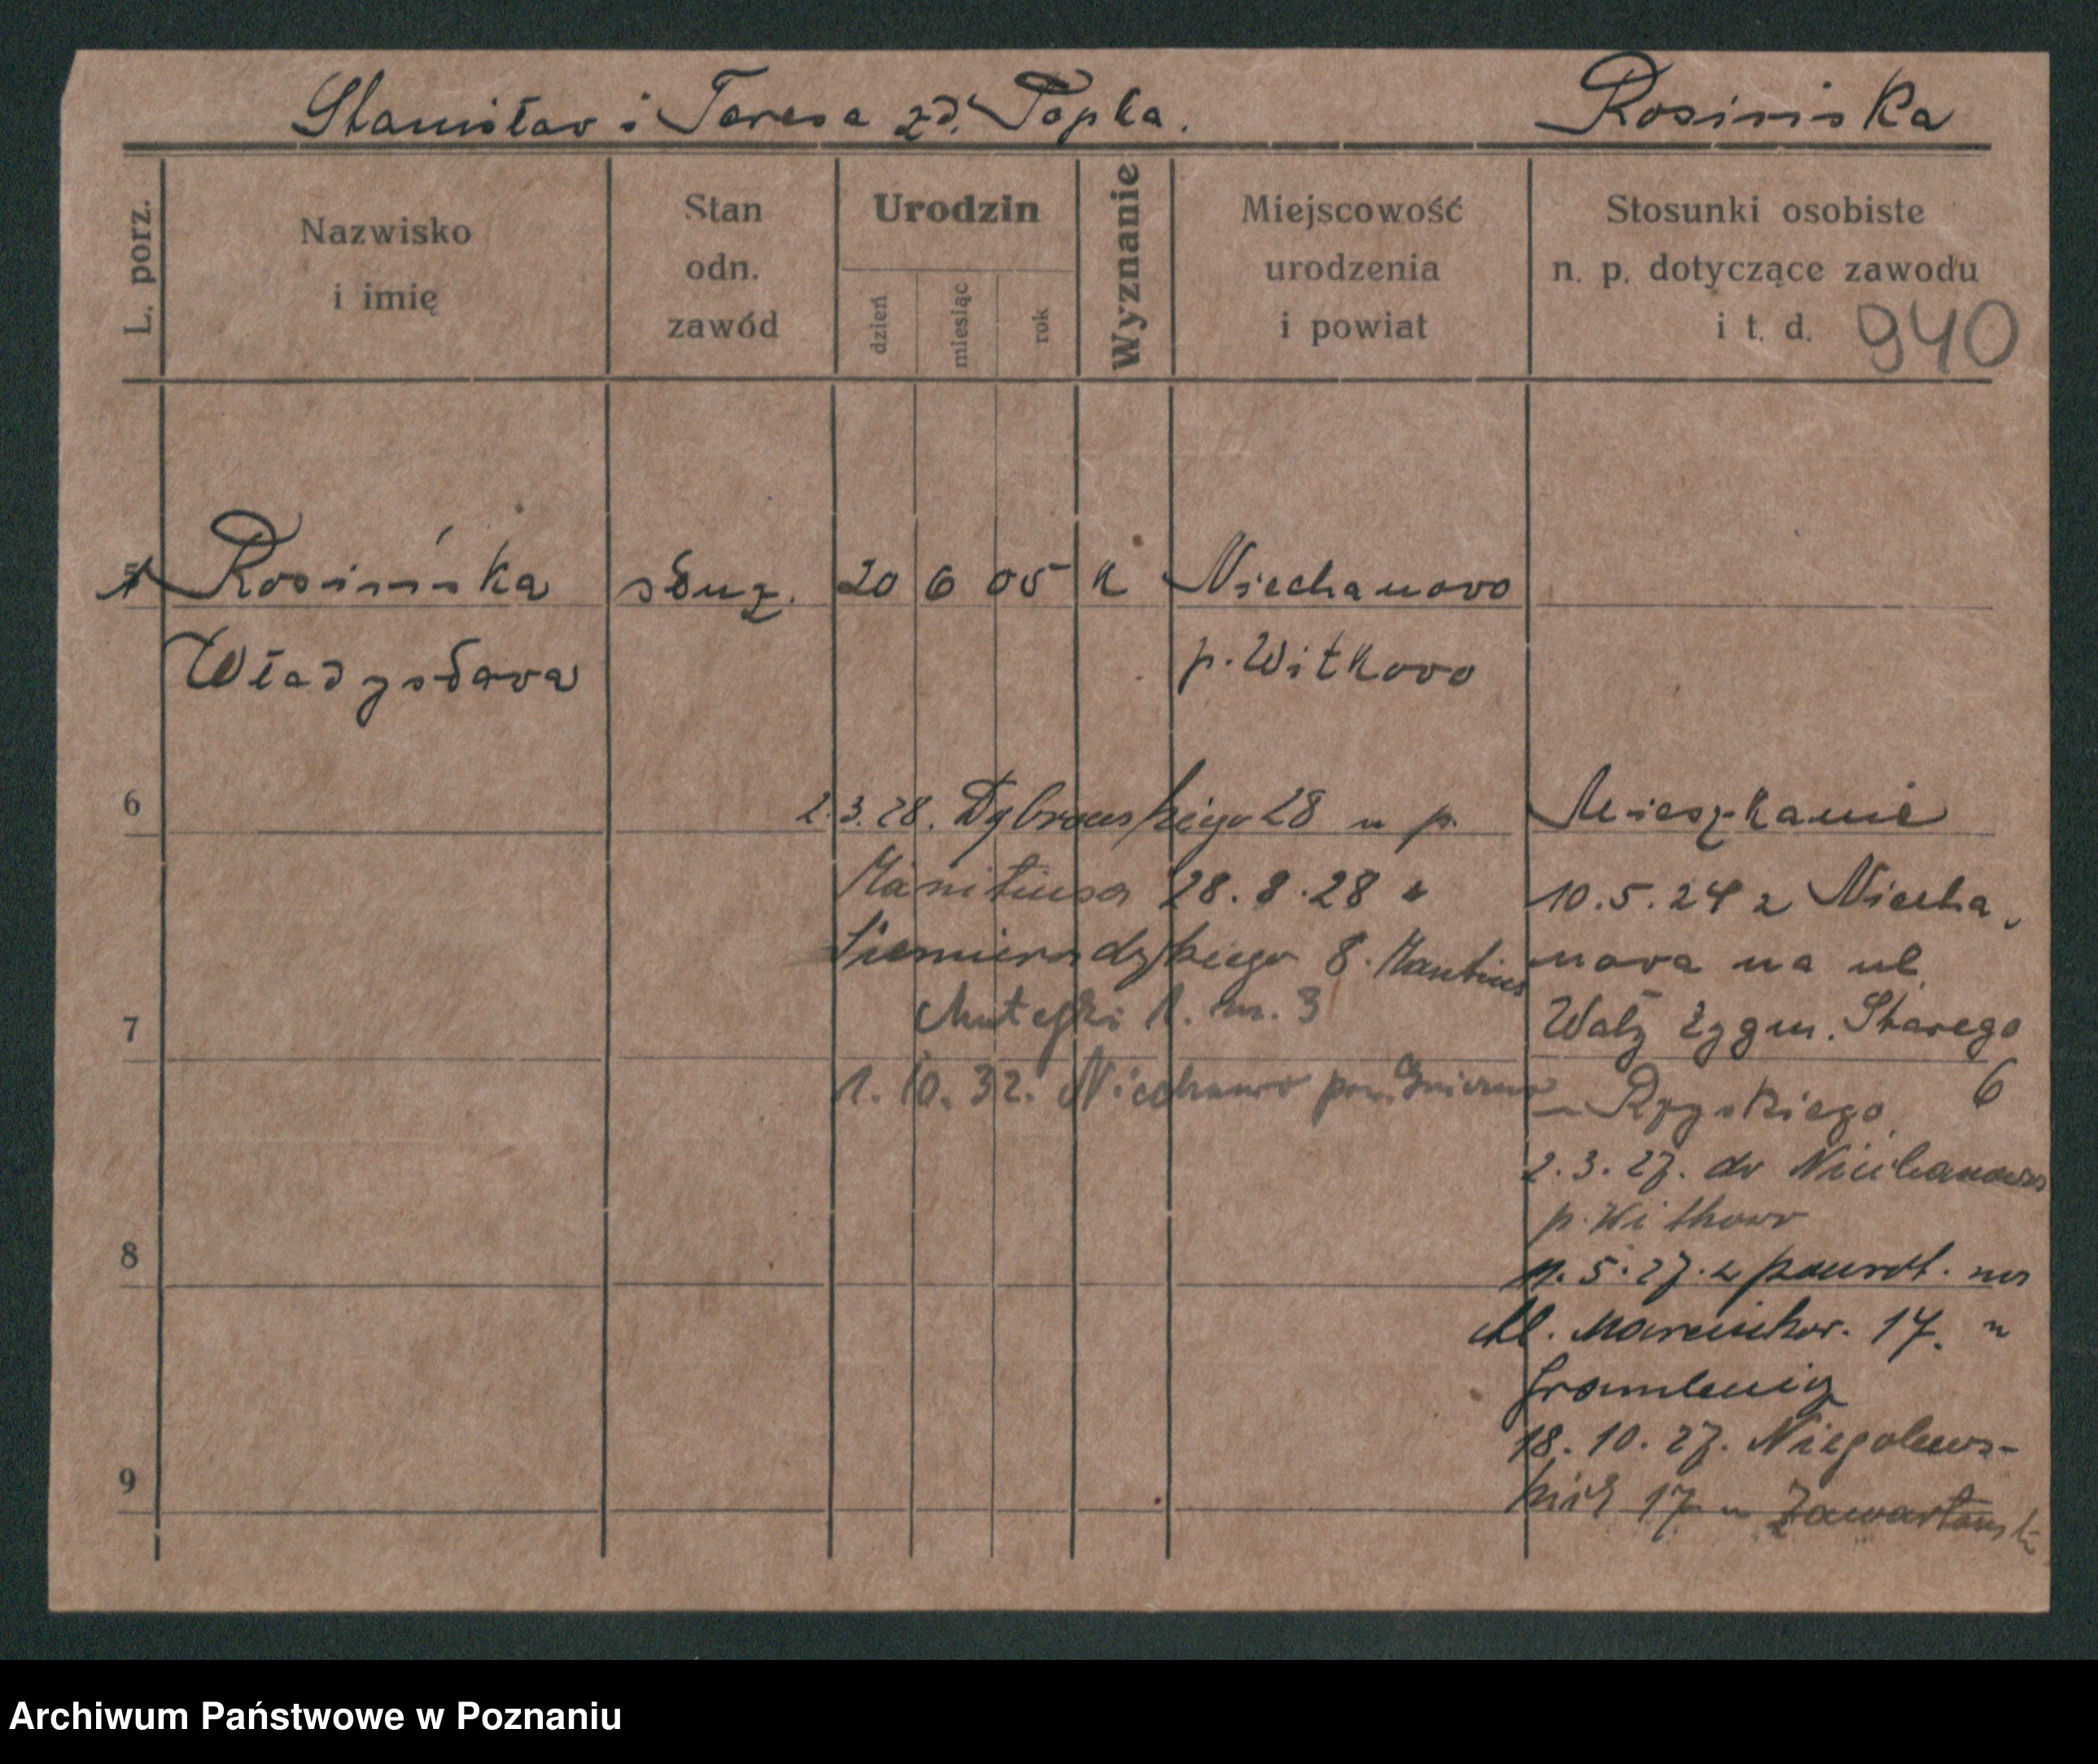 Stanisław i Teresa zd. Popka. Rosińska
L. porz.
Nazwisko
i imię
Stan
odn.
zawód
Urodzin
dzień
miesiąc
rok
Wyznanie
Miejscowość
urodzenia
i powiat
Stosunki osobiste
n. p. dotyczące zawodu
i t. d. 940
1 Rosińska służ. 20 6 05 K Niechanowo
Władysława p. Witkowo
6
7
8
9
2.3.28. Dąbrowskiego 28 u p.
Manitiusa 28.8.28
Siemieradzkiego 8. Mantius
1. m. 3
1.10.32. Niechanowo pow. Gniezno
Mieszkanie
10.5.24 z Niecha
nowa na ul.
Wały Zygm. Starego
6
2.3.27. do Niechanowa
p. Witkowo
5.27. z powrot. na
Marcinkow. 17. u
18.10.27. Niegolews-
kich 17 u
Archiwum Państwowe w Poznaniu